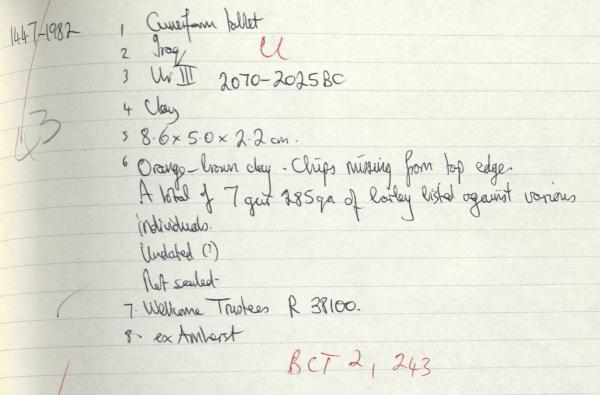 1447-1982 1 Cuneiform tablet
2 Iraq U
3 Ur III 2070-2025BC
4 Clay
5 8.6 x 5.0 x 2.2 cm.
6 Orange-brown clay. Chips missing from top edge.
A total of 7 gur 285 qa of barley listed against various
individuals.
Undated (?)
Not sealed.
7. Wellcome Trustees R 38100.
8. ex Amherst
BCT 2, 243